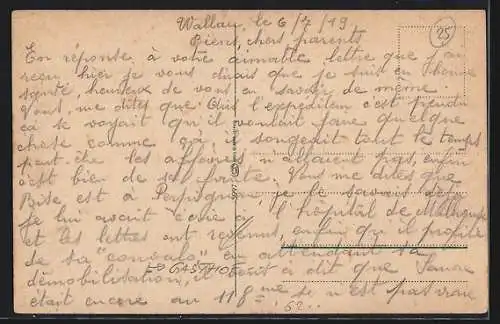 Wallau, le 6/7/19
Bien chers parents
En réponse à votre aimable lettre que j'ai
reçu hier je vous dirais que je suis en bonne
santé, heureux de vous en savoir de même.
Vous me dites que l'expéditeur c'est pendu
ça se voyait qu'il voulait faire quelque
chose comme ça, songeait tout le temps
peut-être les affaires n'allaient pas, enfin
c'est bien de sa faute. Vous me dites que
Bise est à Perpignan, je le savais déjà
je lui avait écrit à l'hôpital de Mulhouse
et les lettres ont revenus, enfin qu'il profite
de sa "convalo" en attendant sa
démobilisation, il à dit que
était encore au 118ème, se n'est pas vrai
25
62